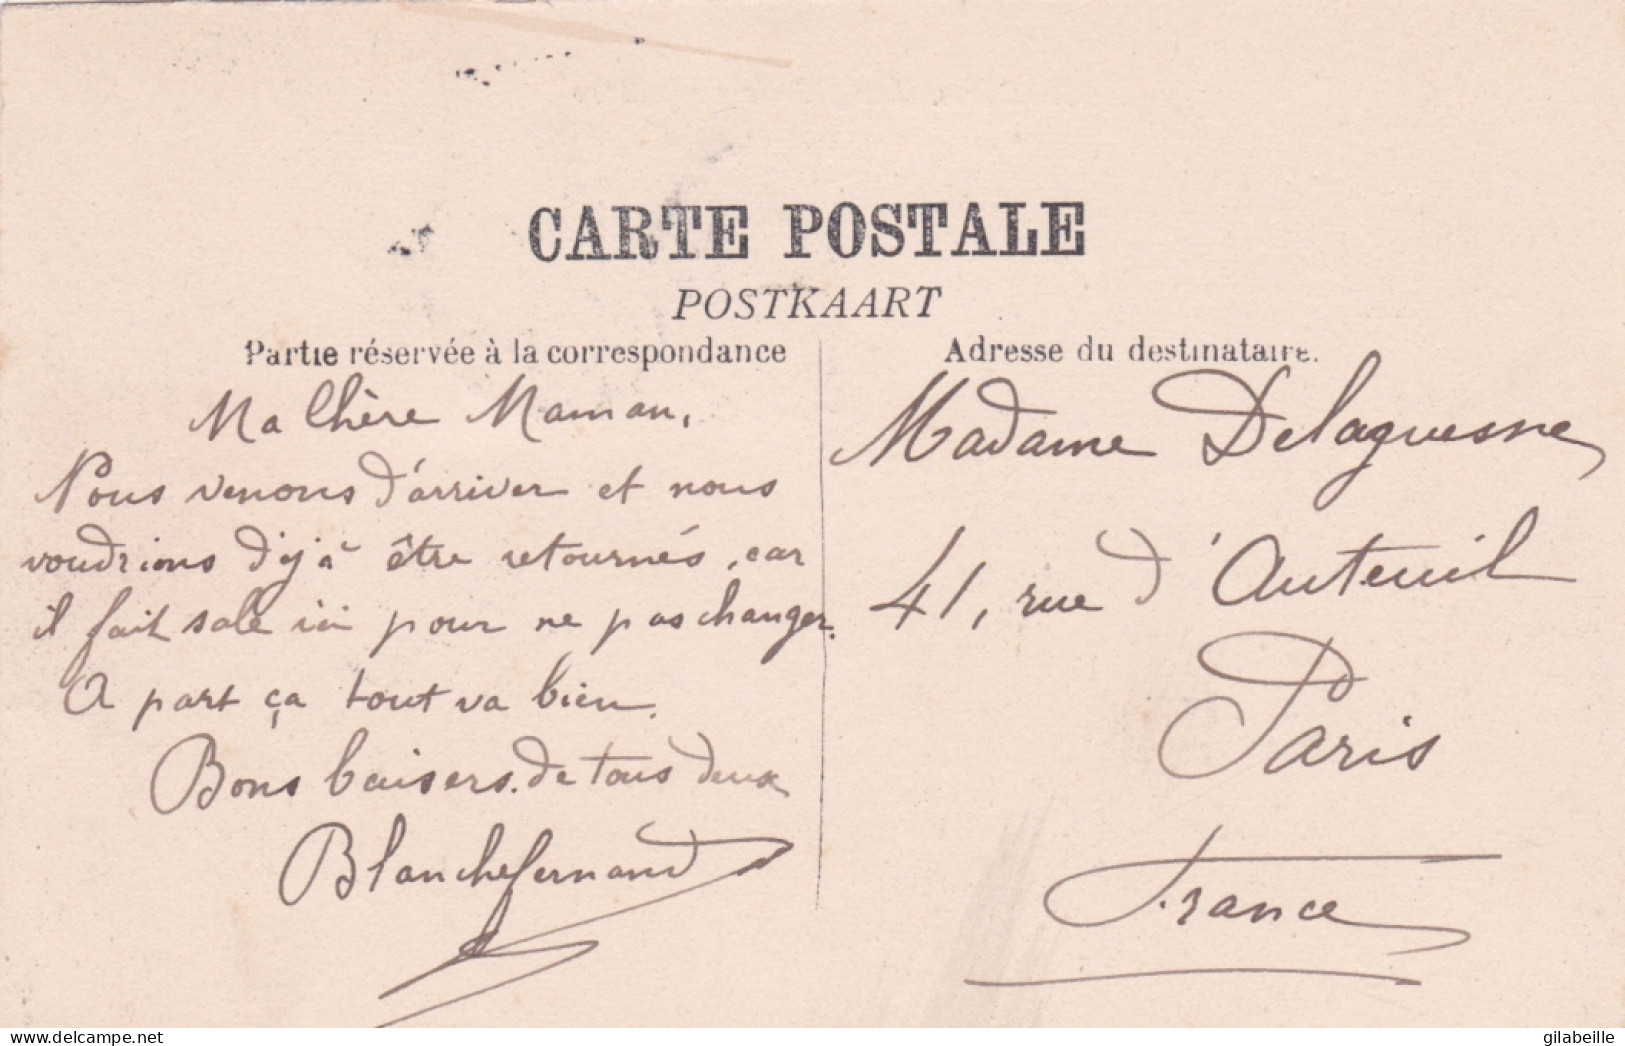 CARTE POSTALE
POSTKAART
Partie réservée à la correspondance
Adresse du destinataire.
Ma Chère Maman,
Nous venons d'arriver et nous
voudrions d'éjà être retournés, car
il fait sale ici pour ne pas changer.
A part ça tout va bien.
Bons baisers de tous deux
Blanchefernand
Madame Delaquesne
41, rue d'Auteuil
Paris
France
www.delcampe.net
gilabeille